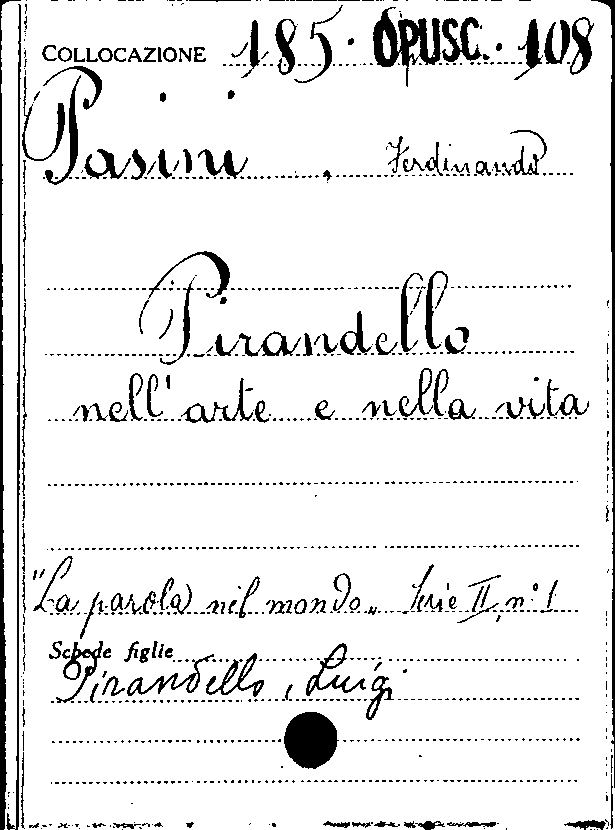 COLLOCAZIONE 185. OPUSC. 108
Pasini, Ferdinando
Pirandello
nell'arte e nella vita
"La parola nel mondo„ Serie II, n° 1
Schede figlie
Pirandello, Luigi